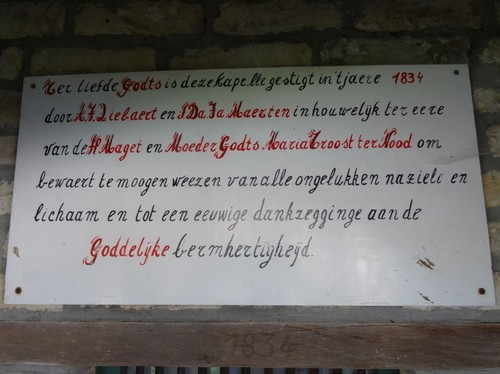 Ter liefde Godts is deze kapelle gestigt in 't jaere 1834
door A.F. Liebaert en I Da Ja Maerten in houwelijk ter eere
van de H Maget en Moeder Godts Maria Troost ter Nood om
bewaert te moogen weezen van alle ongelukken na ziele en
lichaam en tot een eeuwige dankzegginge aan de
Goddelijke bermhertigheijd.
1834